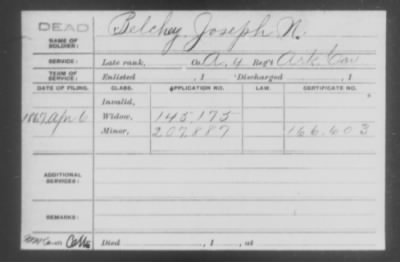 DEAD
NAME OF SOLDIER: Belchey, Joseph N.
SERVICE: Late rank, Co. A, 4 Reg't Ark Cav
TERM OF SERVICE: Enlisted , 1 Discharged , 1
DATE OF FILING. CLASS. APPLICATION NO. LAW. CERTIFICATE NO.
Invalid,
1867, Apr 6 Widow, 145,175
Minor, 207,887 166,603
ADDITIONAL SERVICES:
REMARKS:
Died , 1 , at